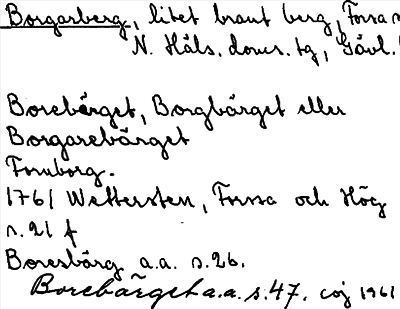 Borgarberg, litet brant berg, Forsa
N. Häls. doms. tg, Gävl.
Borebärget, Borgbärget eller
Borgarebärget
Fornborg.
1761 Wettersten, Forssa och Hög
s. 21 f
Boresbärg a.a. s. 26.
Borebärget a.a. s. 47. coj 1961